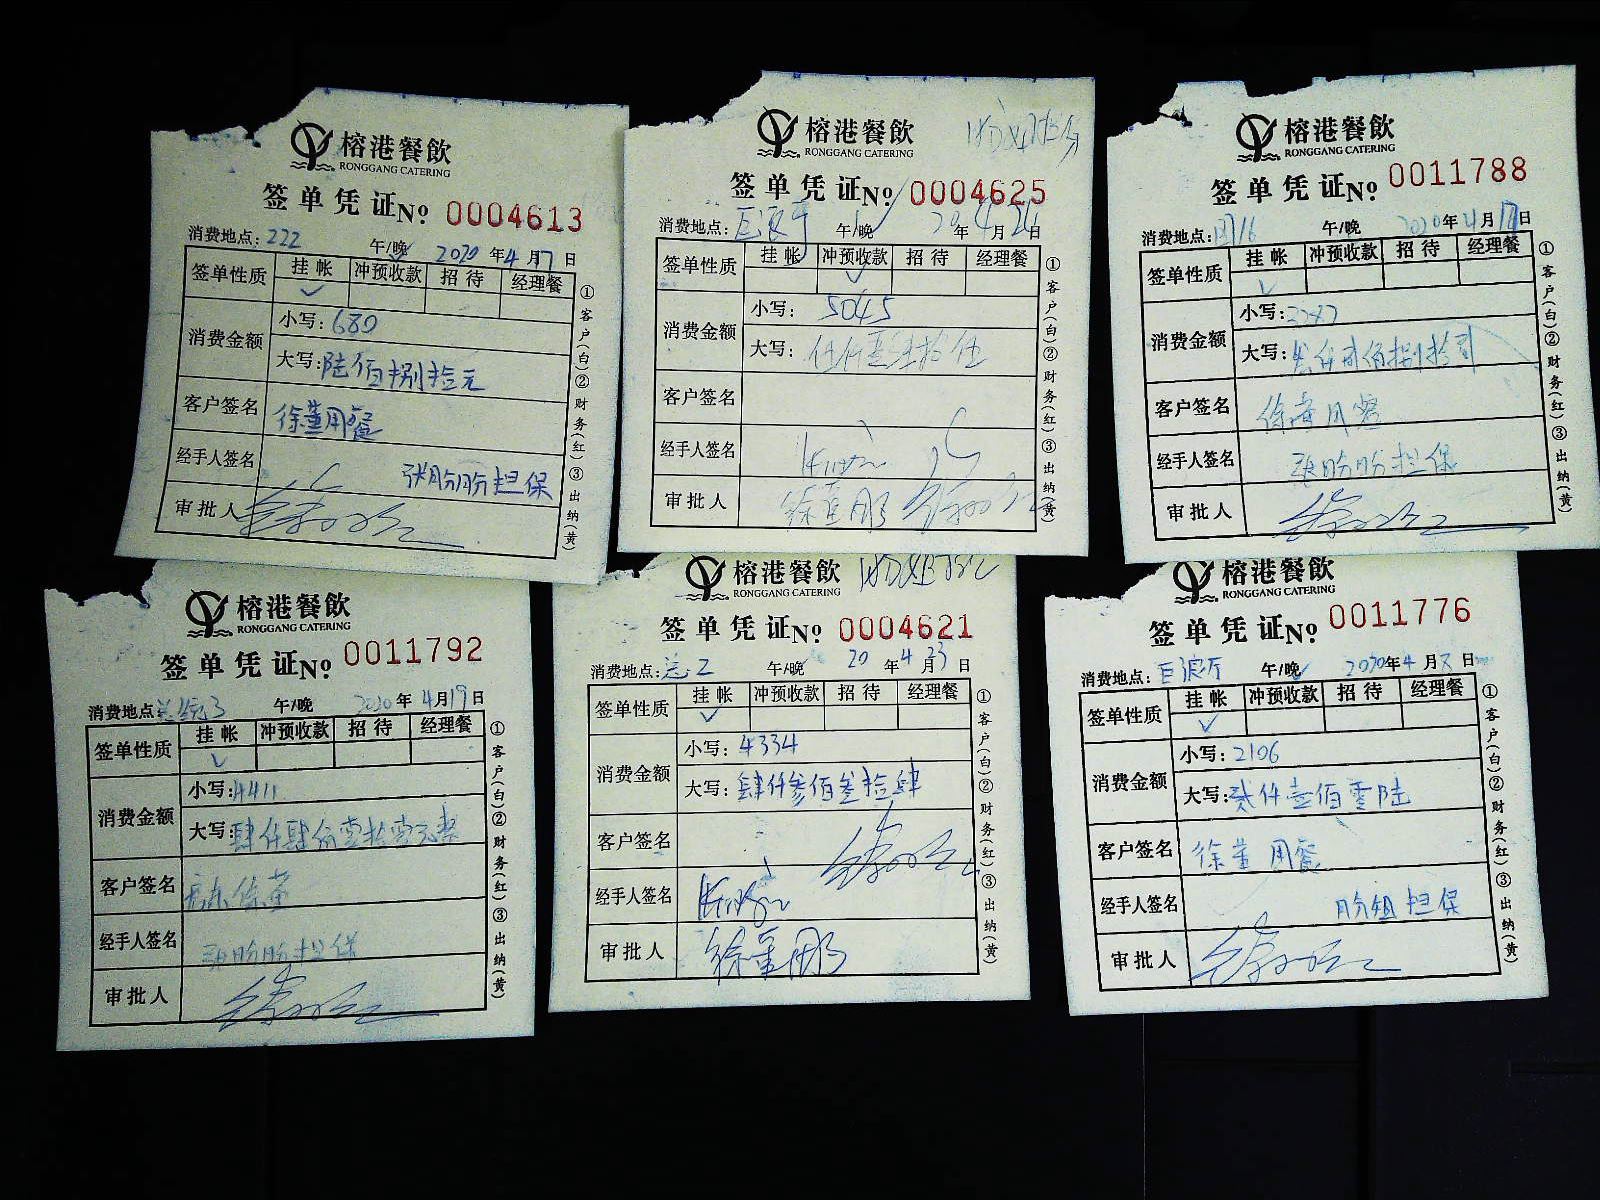 榕港餐飲
RONGGANG CATERING
签单凭证№ 0004613
消费地点：222 午/晚 2020年4月7日
签单性质 挂帐 冲预收款 招待 经理餐
消费金额 小写：680
大写：陆佰捌拾元
客户签名 徐董用餐
经手人签名 张盼盼担保
审批人
①客户(白)②财务(红)③出纳(黄)
榕港餐飲
RONGGANG CATERING
签单凭证№ 0004625
消费地点： 午/晚 20年4月24日
签单性质 挂帐 冲预收款 招待 经理餐
消费金额 小写：5045
大写：
客户签名
经手人签名
审批人
①客户(白)②财务(红)③出纳(黄)
榕港餐飲
RONGGANG CATERING
签单凭证№ 0011788
消费地点： 午/晚 2020年4月17日
签单性质 挂帐 冲预收款 招待 经理餐
消费金额 小写：
大写：
客户签名 徐董用餐
经手人签名 张盼盼担保
审批人
①客户(白)②财务(红)③出纳(黄)
榕港餐飲
RONGGANG CATERING
签单凭证№ 0011792
消费地点： 午/晚 2020年4月19日
签单性质 挂帐 冲预收款 招待 经理餐
消费金额 小写：4411
大写：肆仟肆佰壹拾壹元整
客户签名 徐董
经手人签名 张盼盼担保
审批人
①客户(白)②财务(红)③出纳(黄)
榕港餐飲
RONGGANG CATERING
签单凭证№ 0004621
消费地点： 午/晚 20年4月23日
签单性质 挂帐 冲预收款 招待 经理餐
消费金额 小写：4334
大写：肆仟叁佰叁拾肆
客户签名
经手人签名
审批人
①客户(白)②财务(红)③出纳(黄)
榕港餐飲
RONGGANG CATERING
签单凭证№ 0011776
消费地点：巨浪厅 午/晚 2020年4月 日
签单性质 挂帐 冲预收款 招待 经理餐
消费金额 小写：2106
大写：贰仟壹佰零陆
客户签名 徐董用餐
经手人签名 盼姐担保
审批人
①客户(白)②财务(红)③出纳(黄)